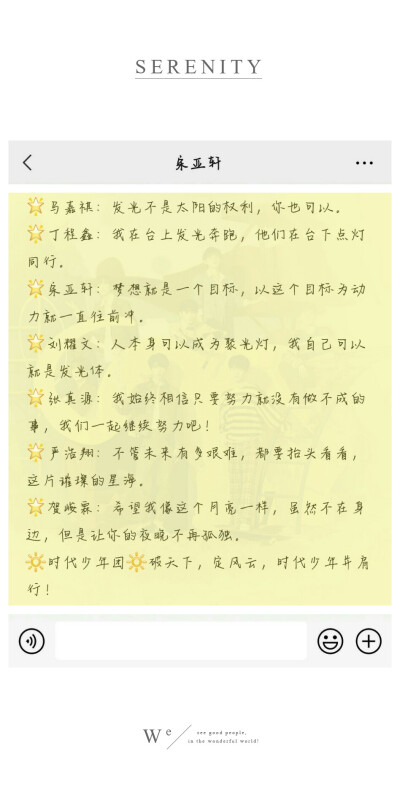 SERENITY
宋亚轩
马嘉祺：发光不是太阳的权利，你也可以。
丁程鑫：我在台上发光奔跑，他们在台下点灯
同行。
宋亚轩：梦想就是一个目标，以这个目标为动
力就一直往前冲。
刘耀文：人本身可以成为聚光灯，我自己可以
就是发光体。
张真源：我始终相信只要努力就没有做不成的
事，我们一起继续努力吧！
严浩翔：不管未来有多艰难，都要抬头看看，
这片璀璨的星海。
贺峻霖：希望我像这个月亮一样，虽然不在身
边，但是让你的夜晚不再孤独。
时代少年团 破天下，定风云，时代少年并肩
行！
We
see good people,
in the wonderful world!